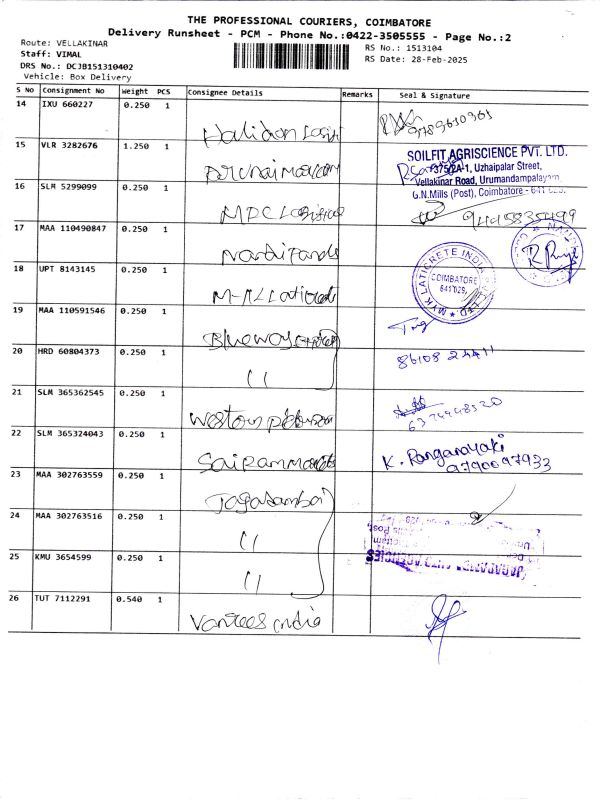 THE PROFESSIONAL COURIERS, COIMBATORE
Delivery Runsheet - PCM - Phone No.:0422-3505555 - Page No.:2
Route: VELLAKINAR
Staff: VIMAL
DRS No.: DCJB151310402
Vehicle: Box Delivery
RS No.: 1513104
RS Date: 28-Feb-2025
S No Consignment No Weight PCS Consignee Details Remarks Seal & Signature
14 IXU 660227 0.250 1
15 VLR 3282676 1.250 1
SOILFIT AGRISCIENCE PVT. LTD.
375/2A-1, Uzhaipalar Street,
Vellakinar Road, Urumandampalayam,
G.N.Mills (Post), Coimbatore - 641 029.
16 SLM 5299099 0.250 1
MDC Logistics
17 MAA 110490847 0.250 1
18 UPT 8143145 0.250 1
MYK LATICRETE INDIA LTD.
COIMBATORE
641 029.
19 MAA 110591546 0.250 1
Blueway
20 HRD 60804373 0.250 1
"
86108 24411
21 SLM 365362545 0.250 1
Western
6374448320
22 SLM 365324043 0.250 1
Sairam
K. Ranganayaki
9790097933
23 MAA 302763559 0.250 1
Jagadambal
24 MAA 302763516 0.250 1
"
25 KMU 3654599 0.250 1
"
26 TUT 7112291 0.540 1
Vantees india